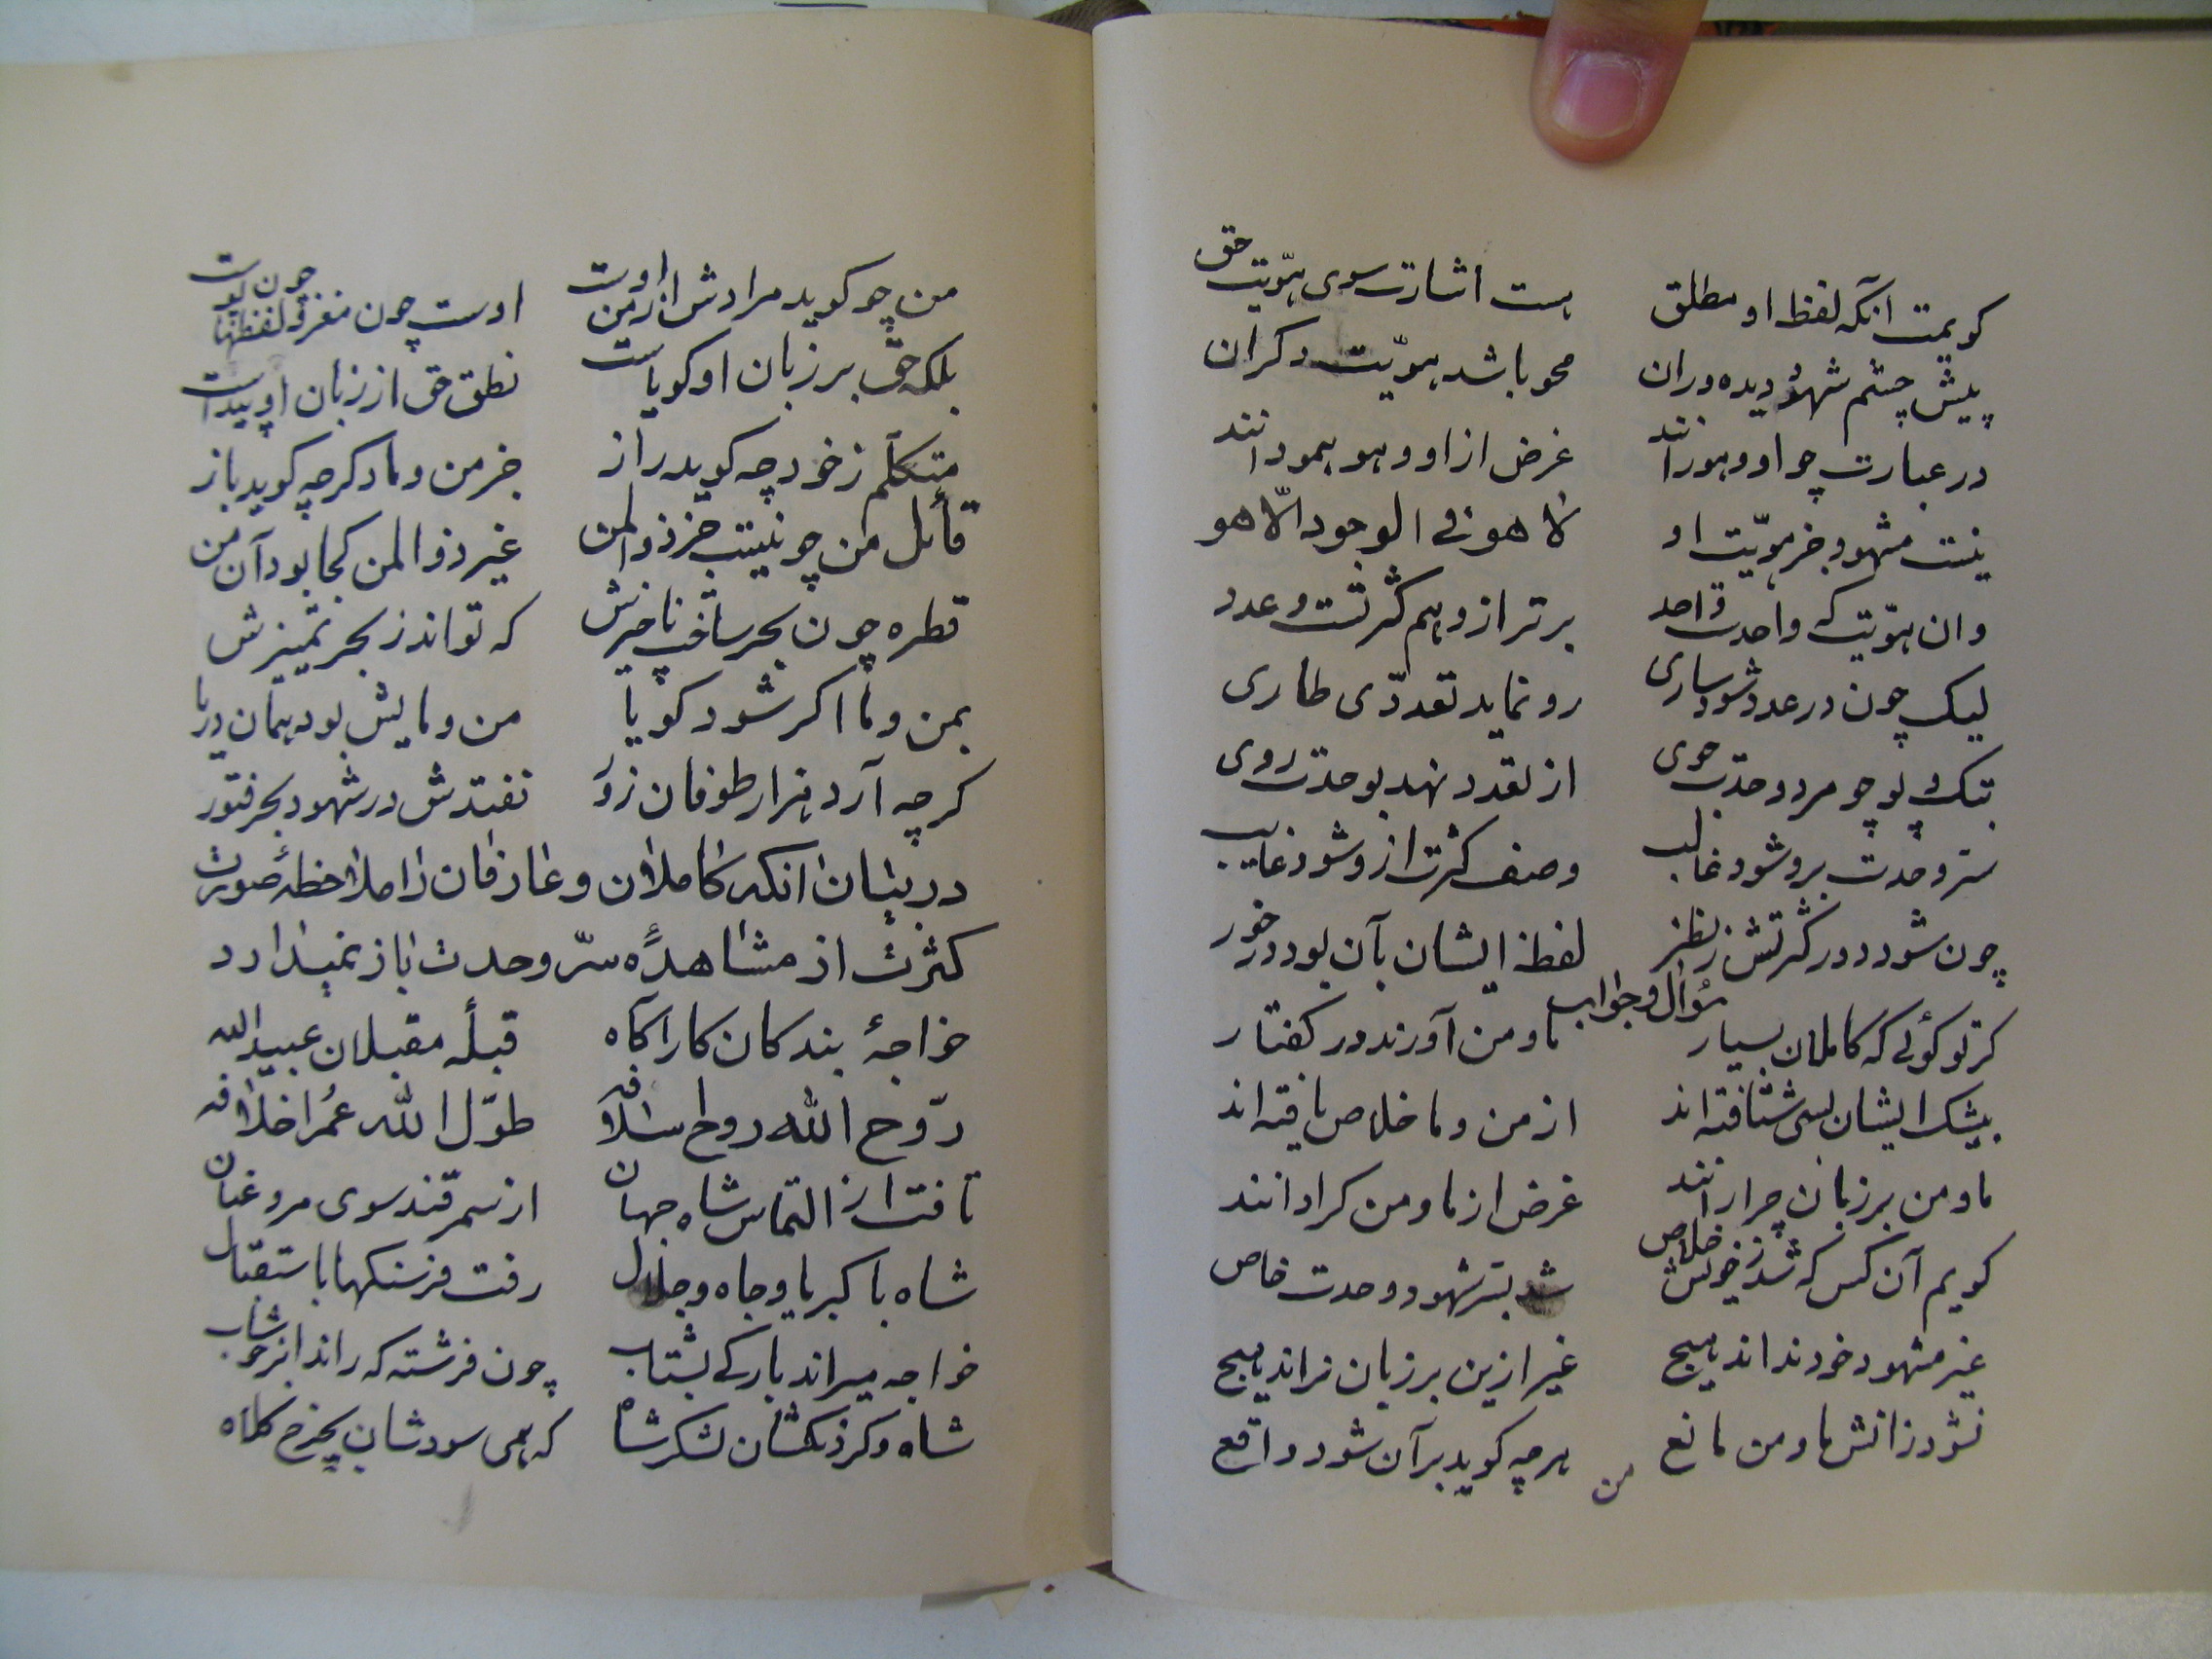 کویمت آنکه لفظ او مطلق هست اشارت سوی هویّت حق
پیش چشم شهود دیده وران محو باشد هویّت دکران
در عبارت چو او و هو رانند غرض از او و هو همو دانند
نیست مشهود جز هویّت او لا هو فی الوجود الّا هو
وان هویّت که واحدست و احد برتر از وهم کثرتست و عدد
لیک چون در عدد شود ساری رو نماید تعدّدی طاری
بتک و پو چو مرد وحدت جوی از تعدد نهد بوحدت روی
سرّ وحدت برو شود غالب وصف کثرت ازو شود غایب
چون شود دور کثرتش ز نظر لفظ ایشان بآن بود در خور
سؤال و جواب
کر تو کوئی که کاملان بسیار ما و من آورند در کفتار
بیشک ایشان بسی شتافته اند از من و ما خلاص یافته اند
ما و من بر زبان چرا رانند غرض از ما و من کرا دانند
کویم آن کس که شد ز خویش خلاص شد بسرّ شهود وحدت خاص
غیر مشهود خود نداند هیچ غیر ازین بر زبان نراند هیچ
نشود زانش ما و من مانع هر چه کوید بر آن شود واقع
من
من چو کوید مرادش از من اوست اوست چون مغز و لفظها چون پوست
بلکه حق بر زبان او کویاست نطق حق از زبان او پیداست
متکلّم ز خود چه کوید راز جز من و ما دکر چه کوید باز
قائل من چو نیست جز ذو المن غیر ذو المن کجا بود آن من
قطره چون بحر ساخت ناچیزش که تواند ز بحر تمییزش
بمن و ما اکر شود کویا من و مایش بود همان دریا
کرچه آرد هزار طوفان زور نفتدش در شهود بحر فتور
در بیان آنکه کاملان و عارفان را ملاحظهٔ صورت
کثرت از مشاهدهٔ سرّ وحدت باز نمیدارد
خواجهٔ بندکان کارآکاه قبلهٔ مقبلان عبید الله
روّح الله روح اسلافه طوّل الله عمر اخلافه
تافت از التماس شاه جهان از سمرقند سوی مرو عنان
شاه با کبریا و جاه و جلال رفت فرسنکها باستقبال
خواجه میراند بارکی بشتاب چون فرشته که راند ابر خوشاب
شاه و کردنکشان لشکر شاه که همی سودشان بچرخ کلاه